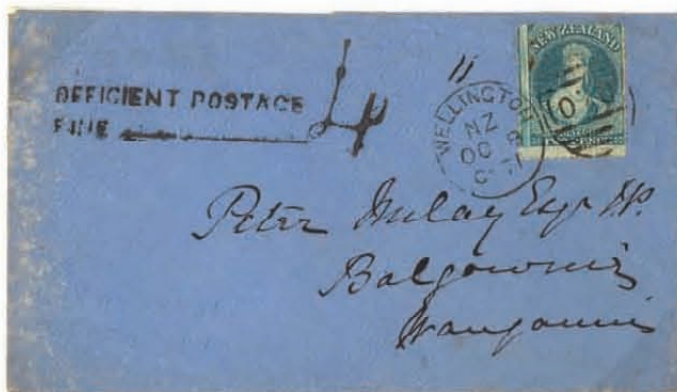 DEFICIENT POSTAGE
FINE 4
NEW ZEALAND
WELLINGTON
NZ
OC
Peter Imlay Esqr JP.
Balgownie
Wanganui